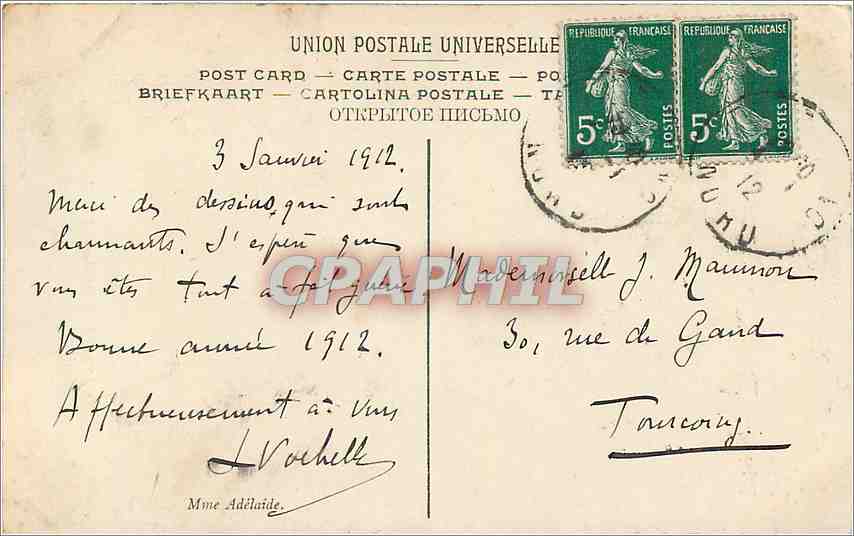 UNION POSTALE UNIVERSELLE
POST CARD — CARTE POSTALE — PO
BRIEFKAART — CARTOLINA POSTALE — TA
ОТКРЫТОЕ ПИСЬМО
REPUBLIQUE FRANÇAISE
5c
POSTES
REPUBLIQUE FRANÇAISE
5c
POSTES
12
3 Janvier 1912.
Merci des dessins, qui sont
charmants. J'espère que
vous êtes tout à fait guérie
Bonne année 1912.
Affectueusement à vous
Mme Adélaïde.
CPAPHIL
Mademoiselle J.
30, rue de Gand
Tourcoing